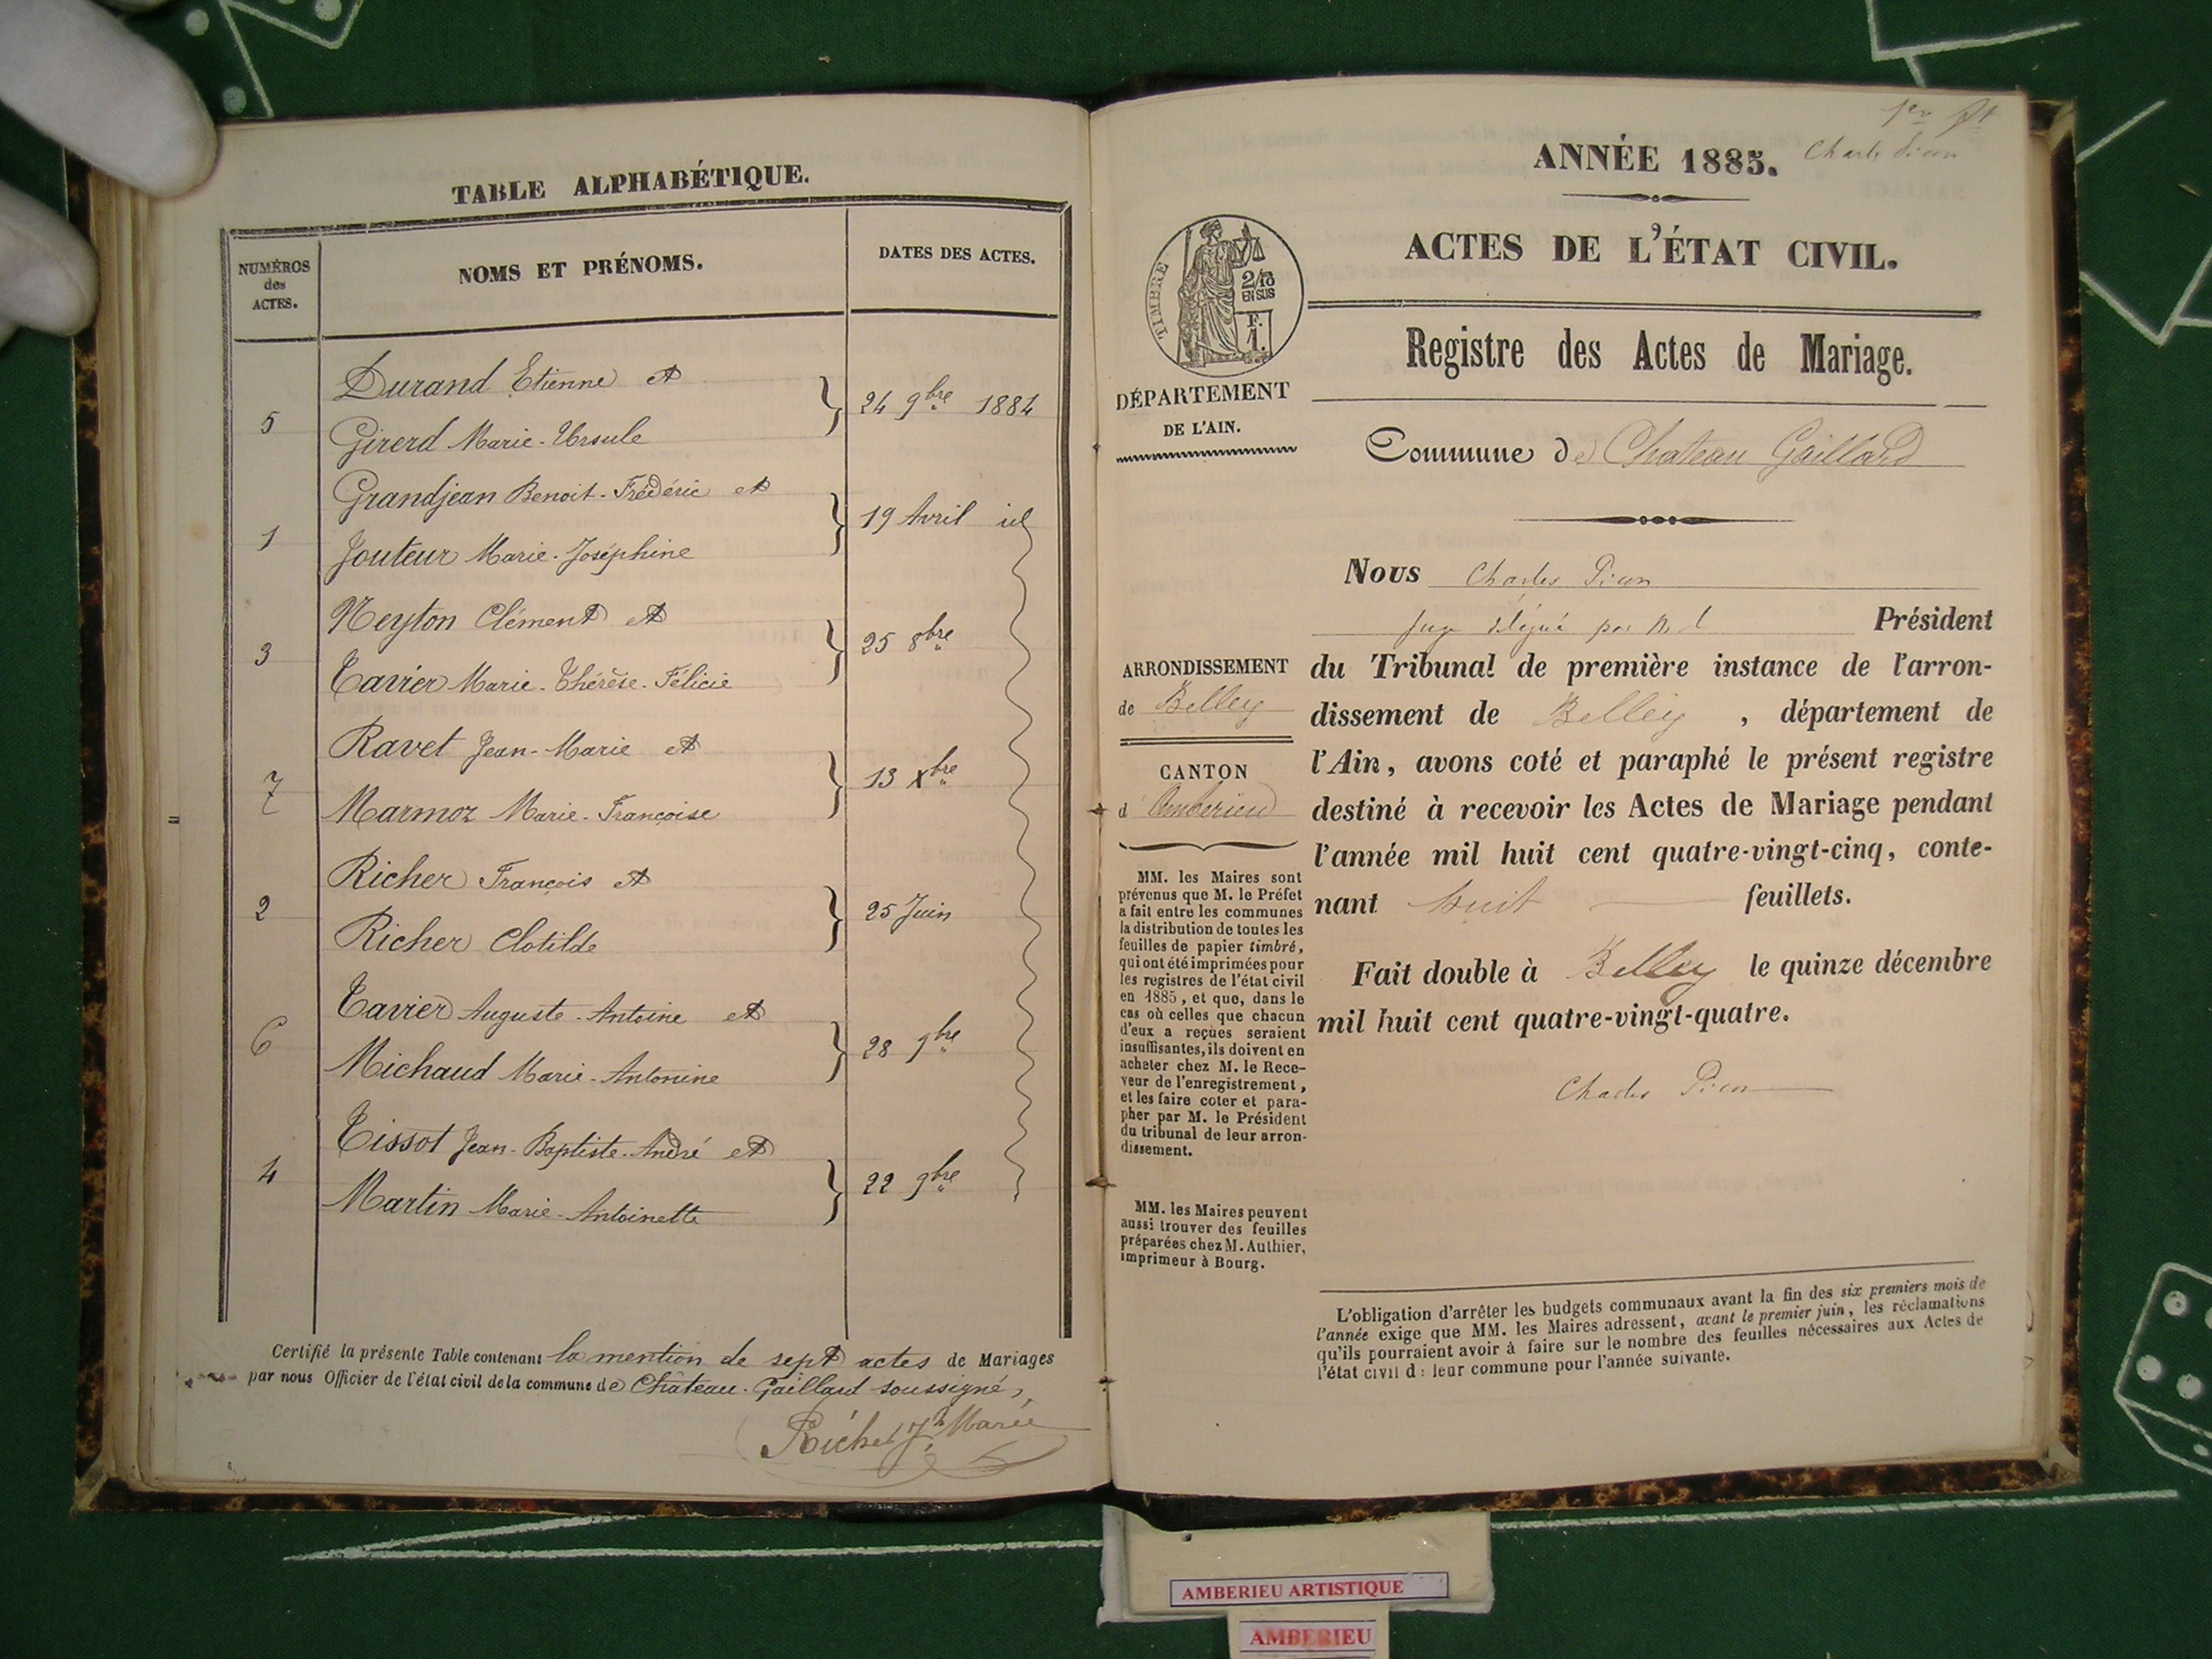 TABLE ALPHABÉTIQUE.
NUMÉROS des ACTES.
NOMS ET PRÉNOMS.
DATES DES ACTES.
5
Durand Etienne et
Girerd Marie-Ursule
24 9bre 1884
1
Grandjean Benoit-Frédéric et
Jouteur Marie-Joséphine
19 Avril id
3
Neyton Clément et
Tavier Marie-Thérèse-Félicie
25 8bre
7
Ravet Jean-Marie et
Marmoz Marie-Françoise
13 Xbre
2
Richer François et
Richer Clotilde
25 Juin
6
Tavier Auguste-Antoine et
Michaud Marie-Antonine
28 9bre
4
Tissot Jean-Baptiste-André et
Martin Marie-Antoinette
22 9bre
Certifié la présente Table contenant la mention de sept actes de Mariages
par nous Officier de l'état civil de la commune de Château-Gaillard soussigné,
Marie
ANNÉE 1885.
ACTES DE L'ÉTAT CIVIL.
TIMBRE
2/10
EN SUS
F.
1.
Registre des Actes de Mariage.
DÉPARTEMENT
DE L'AIN.
Commune de Chateau Gaillard
Nous Charles
Président
du Tribunal de première instance de l'arron-
dissement de Belley, département de
l'Ain, avons coté et paraphé le présent registre
destiné à recevoir les Actes de Mariage pendant
l'année mil huit cent quatre-vingt-cinq, conte-
nant huit feuillets.
Fait double à Belley le quinze décembre
mil huit cent quatre-vingt-quatre.
Charles
ARRONDISSEMENT
de Belley
CANTON
d'Amberieu
MM. les Maires sont
prévenus que M. le Préfet
a fait entre les communes
la distribution de toutes les
feuilles de papier timbré,
qui ont été imprimées pour
les registres de l'état civil
en 1885, et que, dans le
cas où celles que chacun
d'eux a reçues seraient
insuffisantes, ils doivent en
acheter chez M. le Rece-
veur de l'enregistrement,
et les faire coter et para-
pher par M. le Président
du tribunal de leur arron-
dissement.
MM. les Maires peuvent
aussi trouver des feuilles
préparées chez M. Authier,
imprimeur à Bourg.
L'obligation d'arrêter les budgets communaux avant la fin des six premiers mois de
l'année exige que MM. les Maires adressent, avant le premier juin, les réclamations
qu'ils pourraient avoir à faire sur le nombre des feuilles nécessaires aux Actes de
l'état civil d: leur commune pour l'année suivante.
AMBERIEU ARTISTIQUE
AMBERIEU